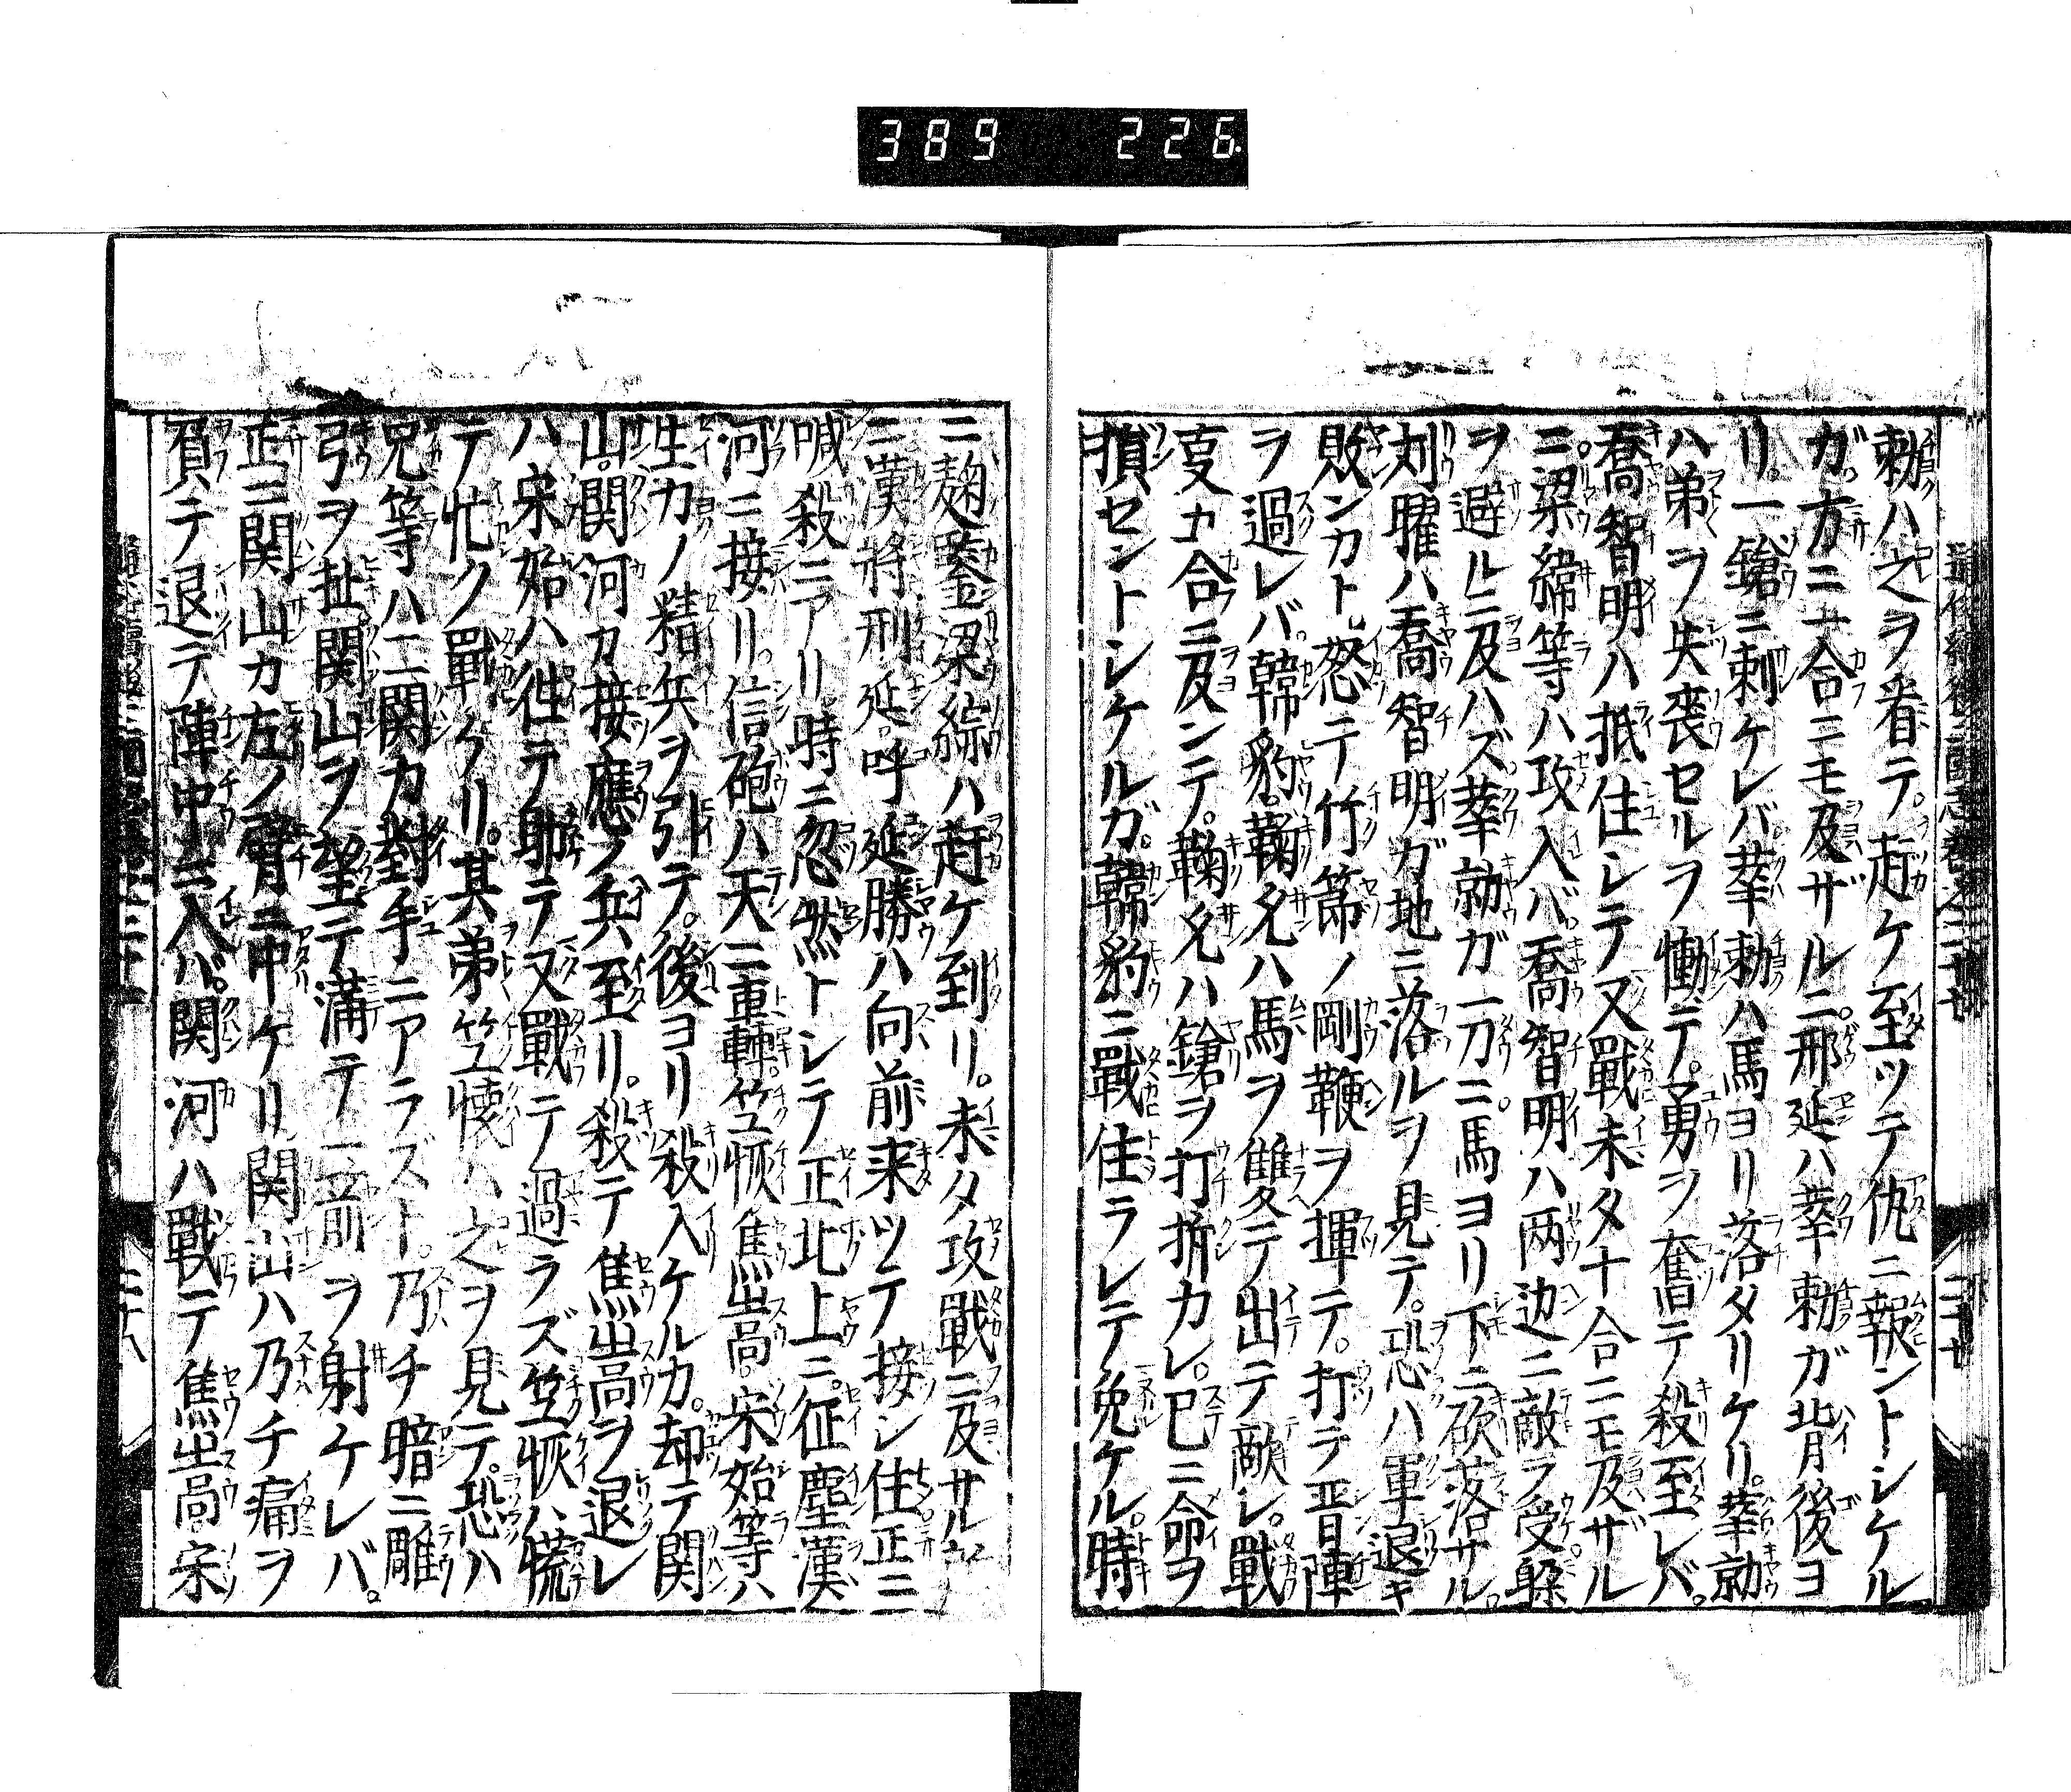 389 226
勅ハ之ヲ看テ。赶ケ至ッテ仇ニ報ントシケル
ガ。方ニ一合ニモ及ザルニ。邢延ハ莘勅ガ背後ヨ
リ。一鎗ニ刺ケレバ。莘勅ハ馬ヨリ落タリケリ。莘勍
ハ弟ヲ失喪セルヲ慟デ。勇ヲ奮テ殺至レバ。
喬智明ハ抵住レテ又戰未タ十合ニモ及ザル
ニ。梁緯等ハ攻入バ。喬智明ハ两边ニ敵ヲ受躱
ヲ避ルニ及ハズ。莘勍ガ一刀ニ。馬ヨリ下ニ砍落サル。
刘曜ハ喬智明ガ地ニ落ルヲ見テ。恐ハ軍退キ
敗ンカト。怒テ竹節ノ剛鞭ヲ揮テ。打テ晋陣
ヲ過レバ。韓豹。鞠允ハ馬ヲ雙テ出テ敵シ。戰
㐂カ合ニ及ンテ。鞠允ハ鎗ヲ打折カレ。已ニ命ヲ
損セントシケルガ。韓豹ニ戰住ラレテ免ケル。時
ニ麹鑒梁綜ハ赶ケ到リ。未タ攻戰ニ及サルニ
ニ漢將刑延呼延勝ハ向前来ッテ接シ住正ニ
喊殺ニアリ時ニ忽然トシテ正北上ニ。征塵漢
河ニ接リ。信砲ハ天ニ重轉。笁恢焦嵩。宋始等ハ
生カノ精兵ヲ引テ。後ヨリ殺入ケルカ。却テ関
山。関河カ接應ノ兵至リ。殺テ焦嵩ヲ退レ
ハ宋始ハ徃テ助テ又戰テ過ラズ笁恢ハ慌
テ忙ク戰ケリ。其弟笁懐ハ之ヲ見テ。恐ハ
兄等ハ二関カ對手ニアラズト。乃チ暗ニ雕
弓ヲ扯関山ヲ望テ滿テ一箭ヲ射ケレバ。
正ニ関山カ左ノ臂ニ中ケリ関山ハ乃チ痛ヲ
負テ退テ陣中ニ入バ。関河ハ戰テ焦嵩宋